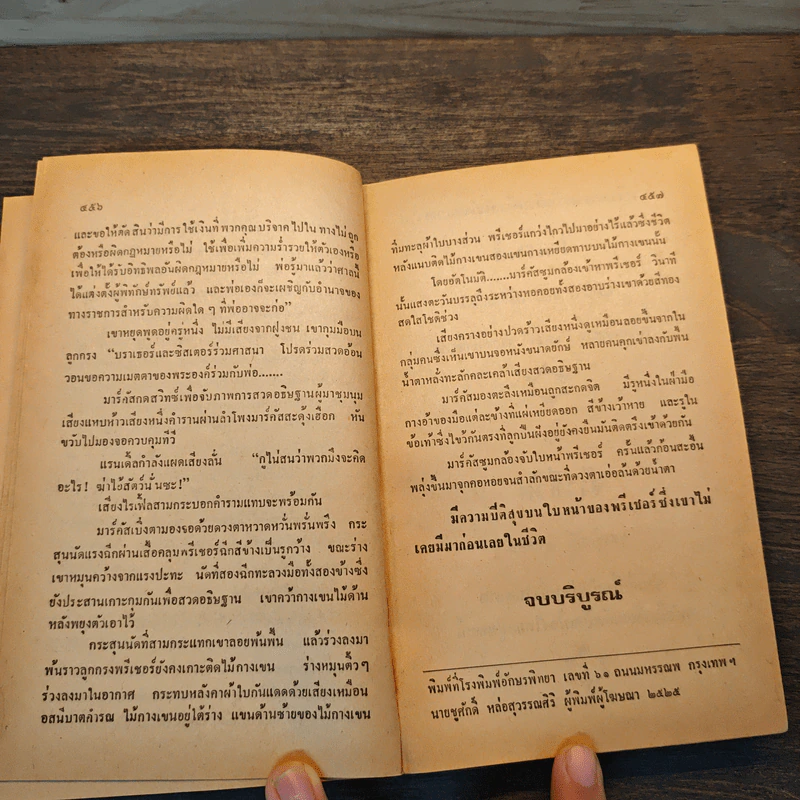 ๔๕๖
และขอให้ตัดสินว่ามีการใช้เงินที่พวกคุณบริจาคไปในทางไม่ถูก
ต้องหรือผิดกฎหมายหรือไม่ ใช้เพื่อเพิ่มความร่ำรวยให้ตัวเองหรือ
เพื่อให้ได้รับอิทธิพลอันผิดกฎหมายหรือไม่ พ่อรู้มาแล้วว่าศาลนี้
ได้แต่งตั้งผู้พิทักษ์ทรัพย์แล้ว และพ่อเองก็จะเผชิญกับอำนาจของ
ทางราชการสำหรับความผิดใด ๆ ที่พ่ออาจจะก่อ”
เขาหยุดพูดอยู่ครู่หนึ่ง ไม่มีเสียงจากฝูงชน เขากุมมือบน
ลูกกรง “บราเธอร์และซิสเตอร์ร่วมศาสนา โปรดร่วมสวดอ้อน
วอนขอความเมตตาของพระองค์ร่วมกับพ่อ.......
มาร์คัสกดสวิทช์เพื่อจับภาพการสวดอธิษฐานผู้มาชุมนุม
เสียงแหบห้าวเสียงหนึ่งคำรามผ่านลำโพงมาร์คัสสะดุ้งเฮือก หัน
ขวับไปมองจอควบคุมทีวี
แรนเดิ้ลกำลังแผดเสียงลั่น “กูไม่สนว่าพวกมึงจะคิด
อะไร! ฆ่าไอ้สัตว์นั่นซะ!”
เสียงไรเฟิ้ลสามกระบอกคำรามแทบจะพร้อมกัน
มาร์คัสเบิ่งตามองจอด้วยดวงตาหวาดหวั่นพรั่นพรึง กระ
สุนนัดแรงฉีกผ่านเสื้อคลุมพรีเชอร์ฉีกสีข้างเป็นรูกว้าง ขณะร่าง
เขาหมุนคว้างจากแรงปะทะ นัดที่สองฉีกทะลวงมือทั้งสองข้างซึ่ง
ยังประสานเกาะกุมกันเพื่อสวดอธิษฐาน เขาคว้ากางเขนไม้ด้าน
หลังพยุงตัวเอาไว้
กระสุนนัดที่สามกระแทกเขาลอยพ้นพื้น แล้วร่วงลงมา
พ้นราวลูกกรงพรีเชอร์ยังคงเกาะติดไม้กางเขน ร่างหมุนติ้วๆ
ร่วงลงมาในอากาศ กระทบหลังคาผ้าใบกันแดดด้วยเสียงเหมือน
อสนีบาตคำรณ ไม้กางเขนอยู่ใต้ร่าง แขนด้านซ้ายของไม้กางเขน
๔๕๗
ทิ่มทะลุผ้าใบบางส่วน พรีเชอร์แกว่งไกวไปมาอย่างไร้แล้วซึ่งชีวิต
หลังแนบติดไม้กางเขนสองแขนกางเหยียดทาบบนไม้กางเขนนั้น
โดยอัตโนมัติ.......มาร์คัสซูมกล้องเข้าหาพรีเชอร์ วินาที
นั้นแสงตะวันบรรลุถึงระหว่างหอคอยทั้งสองอาบร่างเขาด้วยสีทอง
สดใสโชติช่วง
เสียงครางอย่างปวดร้าวเสียงหนึ่งดูเหมือนลอยขึ้นจากใน
กลุ่มคนซึ่งเห็นเขาบนจอหนังขนาดยักษ์ หลายคนคุกเข่าลงกับพื้น
น้ำตาหลั่งทะลักคละเคล้าเสียงสวดอธิษฐาน
มาร์คัสมองตะลึงเหมือนถูกสะกดจิต มีรูหนึ่งในฝ่ามือ
กางอ้าของมือแต่ละข้างที่แผ่เหยียดออก สีข้างเว้าหาย และรูใน
ข้อเท้าซึ่งไขว้กันตรงที่ลูกปืนฝังอยู่ยังคงยืนมันติดตรึงเข้าด้วยกัน
มาร์คัสซูมกล้องจับใบหน้าพรีเชอร์ ครั้นแล้วก้อนสะอื้น
พลุ่งขึ้นมาจุกคอหอยจนสำลักขณะที่ดวงตาเอ่อล้นด้วยน้ำตา
มีความปีติสุขบนใบหน้าของพรีเชอร์ซึ่งเขาไม่
เคยมีมาก่อนเลยในชีวิต
จบบริบูรณ์
พิมพ์ที่โรงพิมพ์อักษรพิทยา เลขที่ ๖๑ ถนนมหรรณพ กรุงเทพฯ
นายชูศักดิ์ หล่อสุวรรณศิริ ผู้พิมพ์ผู้โฆษณา ๒๕๒๕